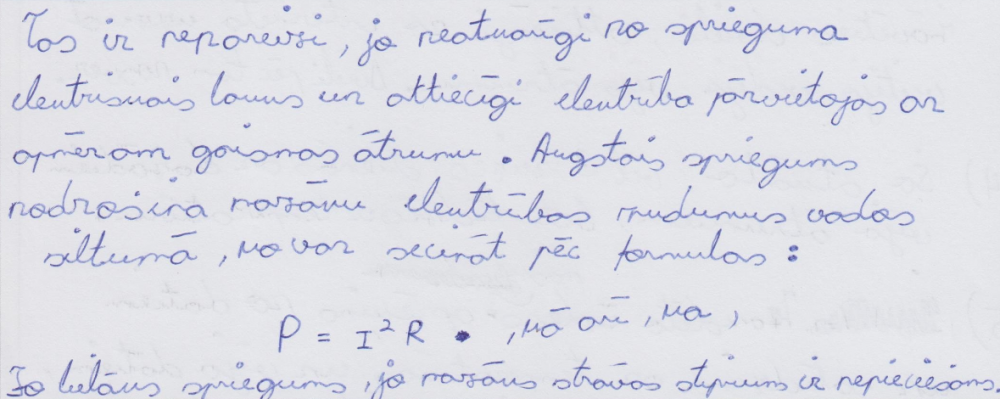 Tas ir nepareizi, jo neatkarīgi no sprieguma
elektriskais lauks un attiecīgi elektrība pārvietojas ar
apmēram gaismas ātrumu. Augstais spriegums
nodrošina mazāku elektrības zudumus vados
siltumā, ko var secināt pēc formulas:
P = I²R , kā arī, ka,
Jo lielāks spriegums, jo mazāks strāvas stiprums ir nepieciešams.